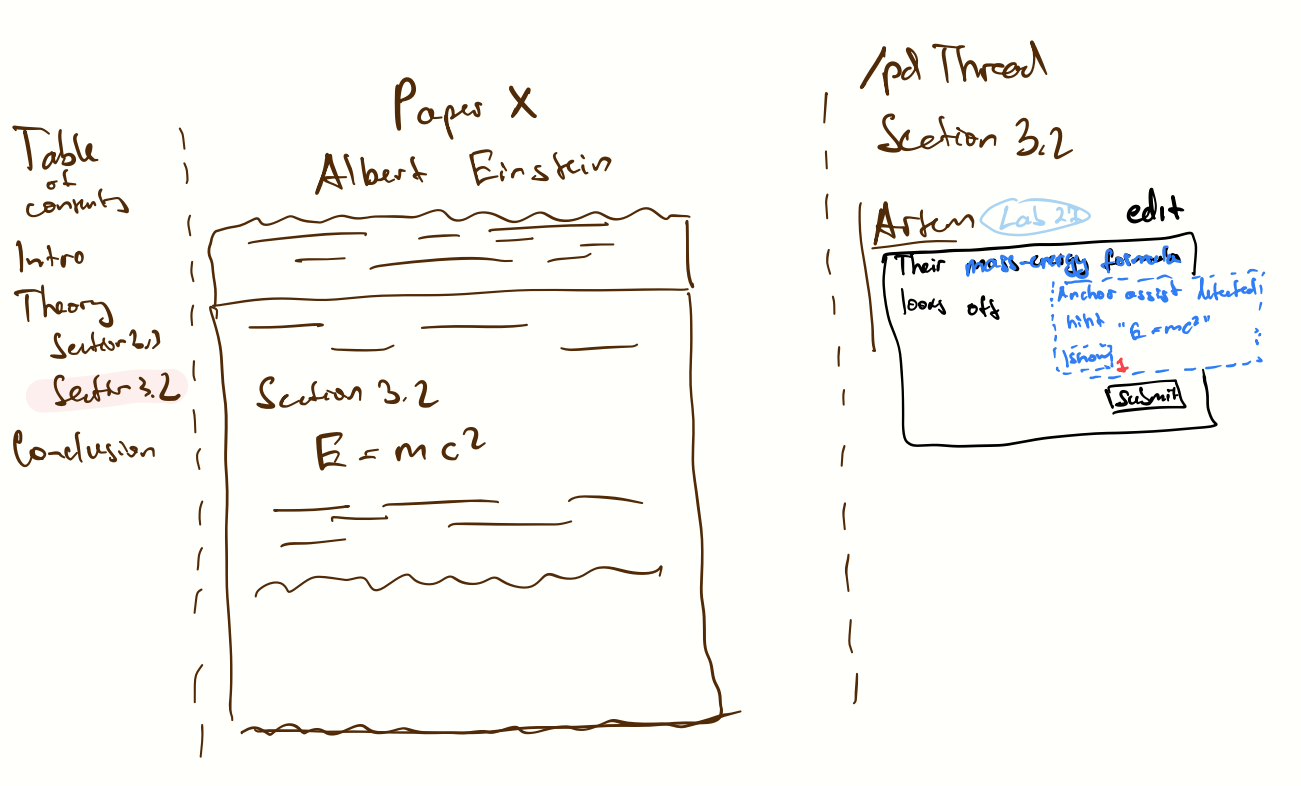 Table
of
contents
Intro
Theory
Section 3.2
Conclusion
Paper X
Albert Einstein
Section 3.2
E = mc²
/pd Thread
Section 3.2
Artem Lab 27 edit
Their mass-energy formula
looks off
Anchor assist detected
hint "E=mc²"
show 1
Submit